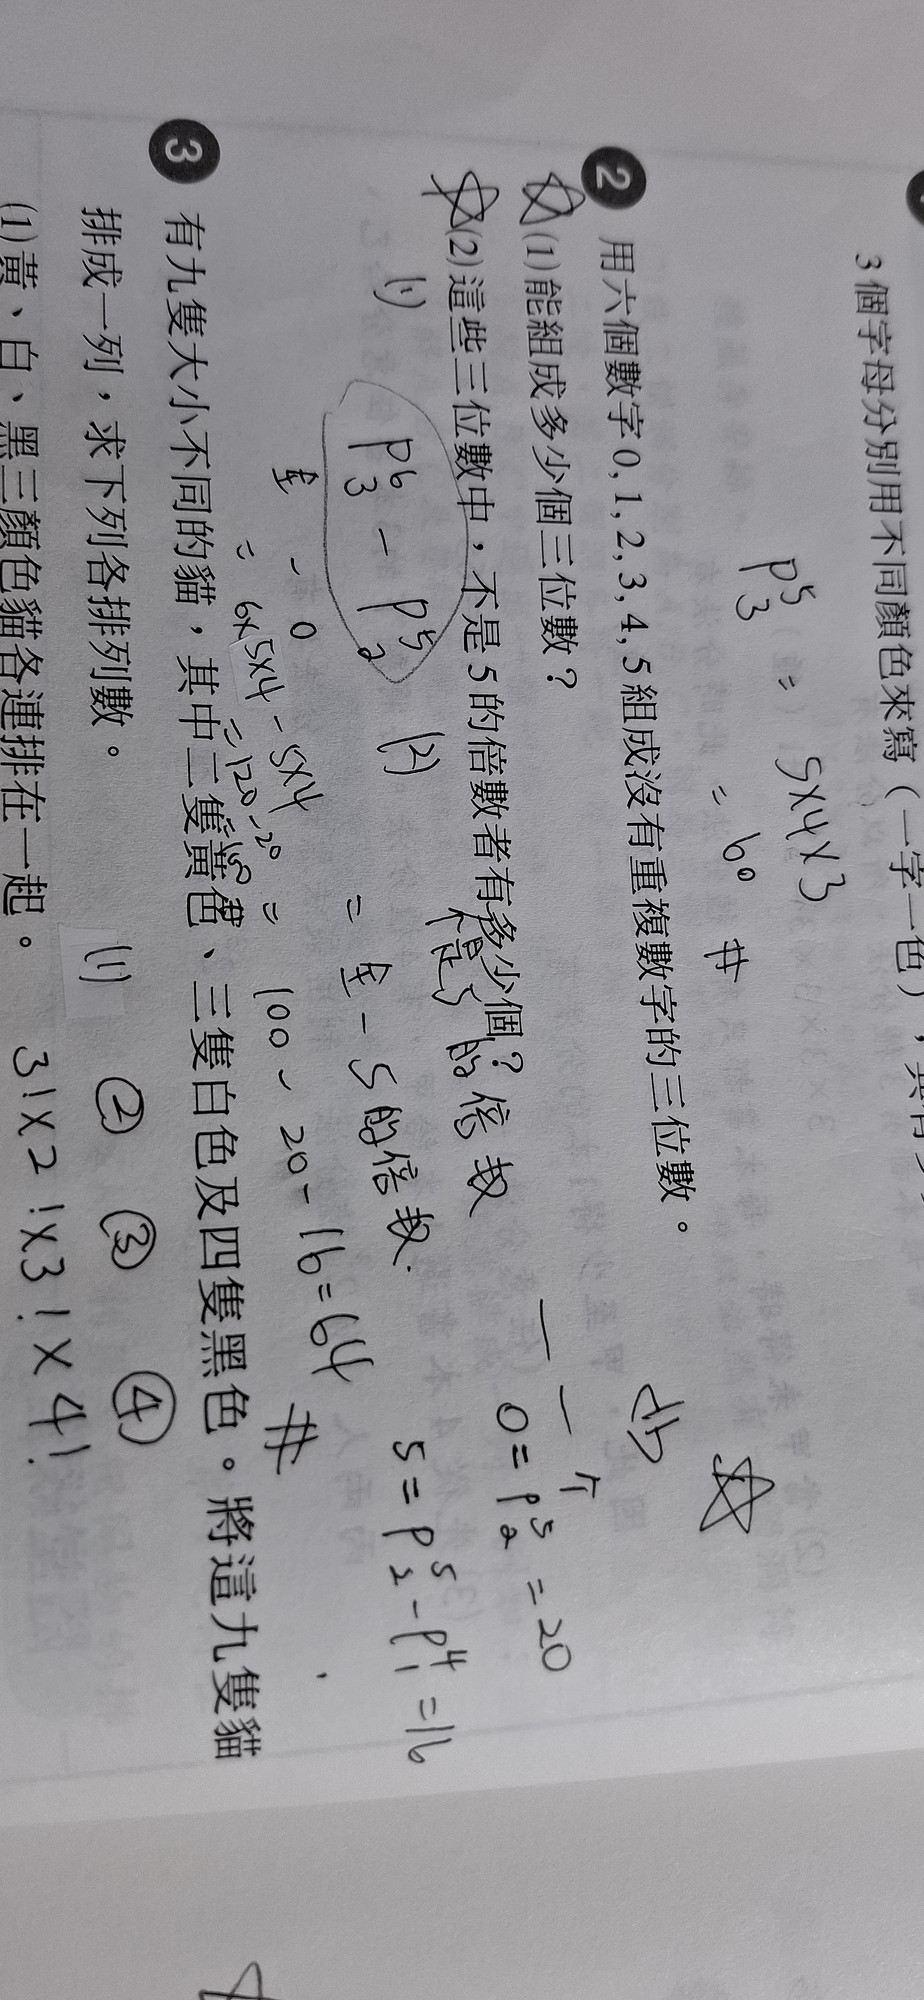 3個字母分別用不同顏色來寫（一字一色），共有
P⁵₃ 5×4×3
= 60 #
2 用六個數字0, 1, 2, 3, 4, 5組成沒有重複數字的三位數。
(1)能組成多少個三位數？
(2)這些三位數中，不是5的倍數者有多少個？
(1) P⁶₃ - P⁵₂
全 - 0
= 6×5×4 - 5×4
= 120 - 20
= 100
(2) 不是5的倍數
= 全 - 5的倍數
= 100 - 20 - 16 = 64 #
0 = P⁵₂ = 20
5 = P⁵₂ - P⁴₁ = 16
3 有九隻大小不同的貓，其中二隻黃色、三隻白色及四隻黑色。將這九隻貓
排成一列，求下列各排列數。
(1)黃、白、黑三顏色貓各連排在一起。
(1) ② ③ ④
3! × 2! × 3! × 4!